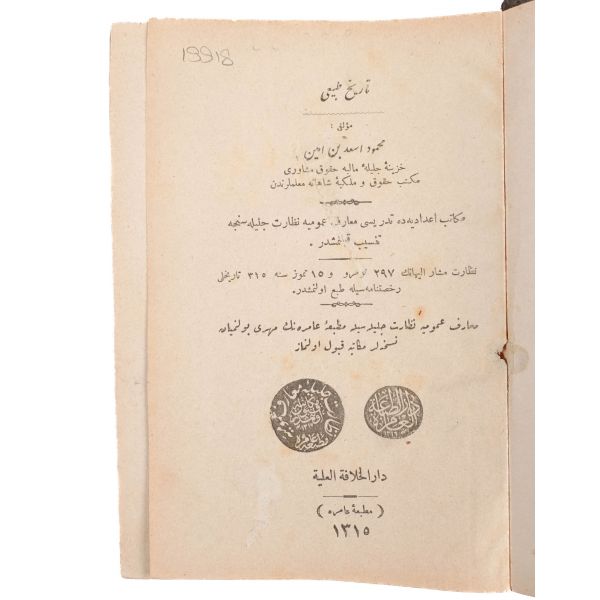 19918
تاریخ طبیعی
مؤلفی :
محمود اسعد بن امین
خزینۀ جلیلۀ مالیه حقوق مشاوری
مکتب حقوق و ملکیۀ شاهانه معلملرندن
مکاتب اعدادیه‌ده تدریسی معارف عمومیه نظارت جلیله‌سنجه
تنسیب قلنمشدر .
نظارت مشار الیهانك ٢٩٧ نومرو و ١٥ تموز سنه ٣١٥ تاریخلی
رخصتنامه سیله طبع اولنمشدر.
معارف عمومیه نظارت جلیله سیله مطبعۀ عامره نك مهری بولنمیان
نسخه لر مکاتبه قبول اولنماز
دار الطباعة العامره
دار الخلافة العلیة
( مطبعۀ عامره )
١٣١٥